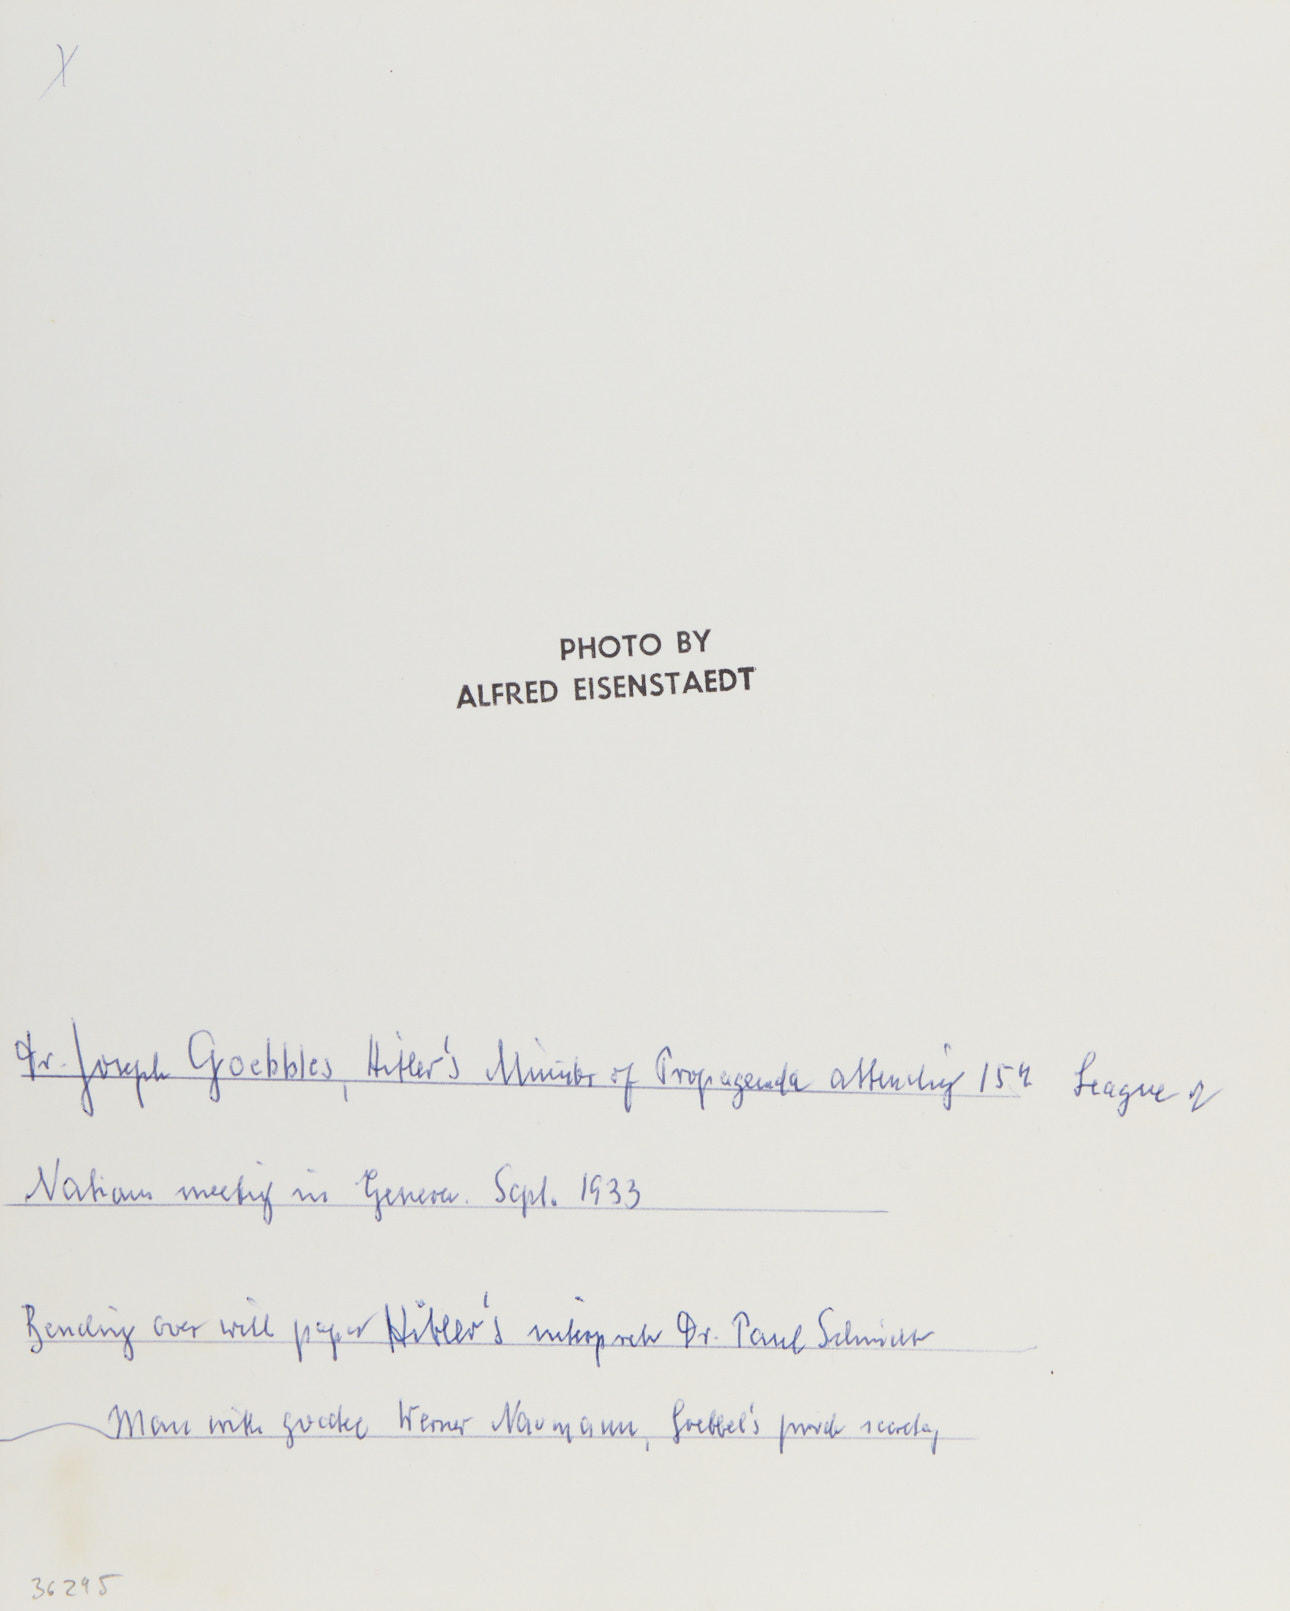 X
PHOTO BY
ALFRED EISENSTAEDT
Dr. Joseph Goebbles, Hitler's Minister of Propaganda attending 15th League of
Nations meeting in Geneva. Sept. 1933
Bending over with paper Hitler's interpreter Dr. Paul Schmidt
Man with Werner Naumann, Goebbel's private secretary
36295